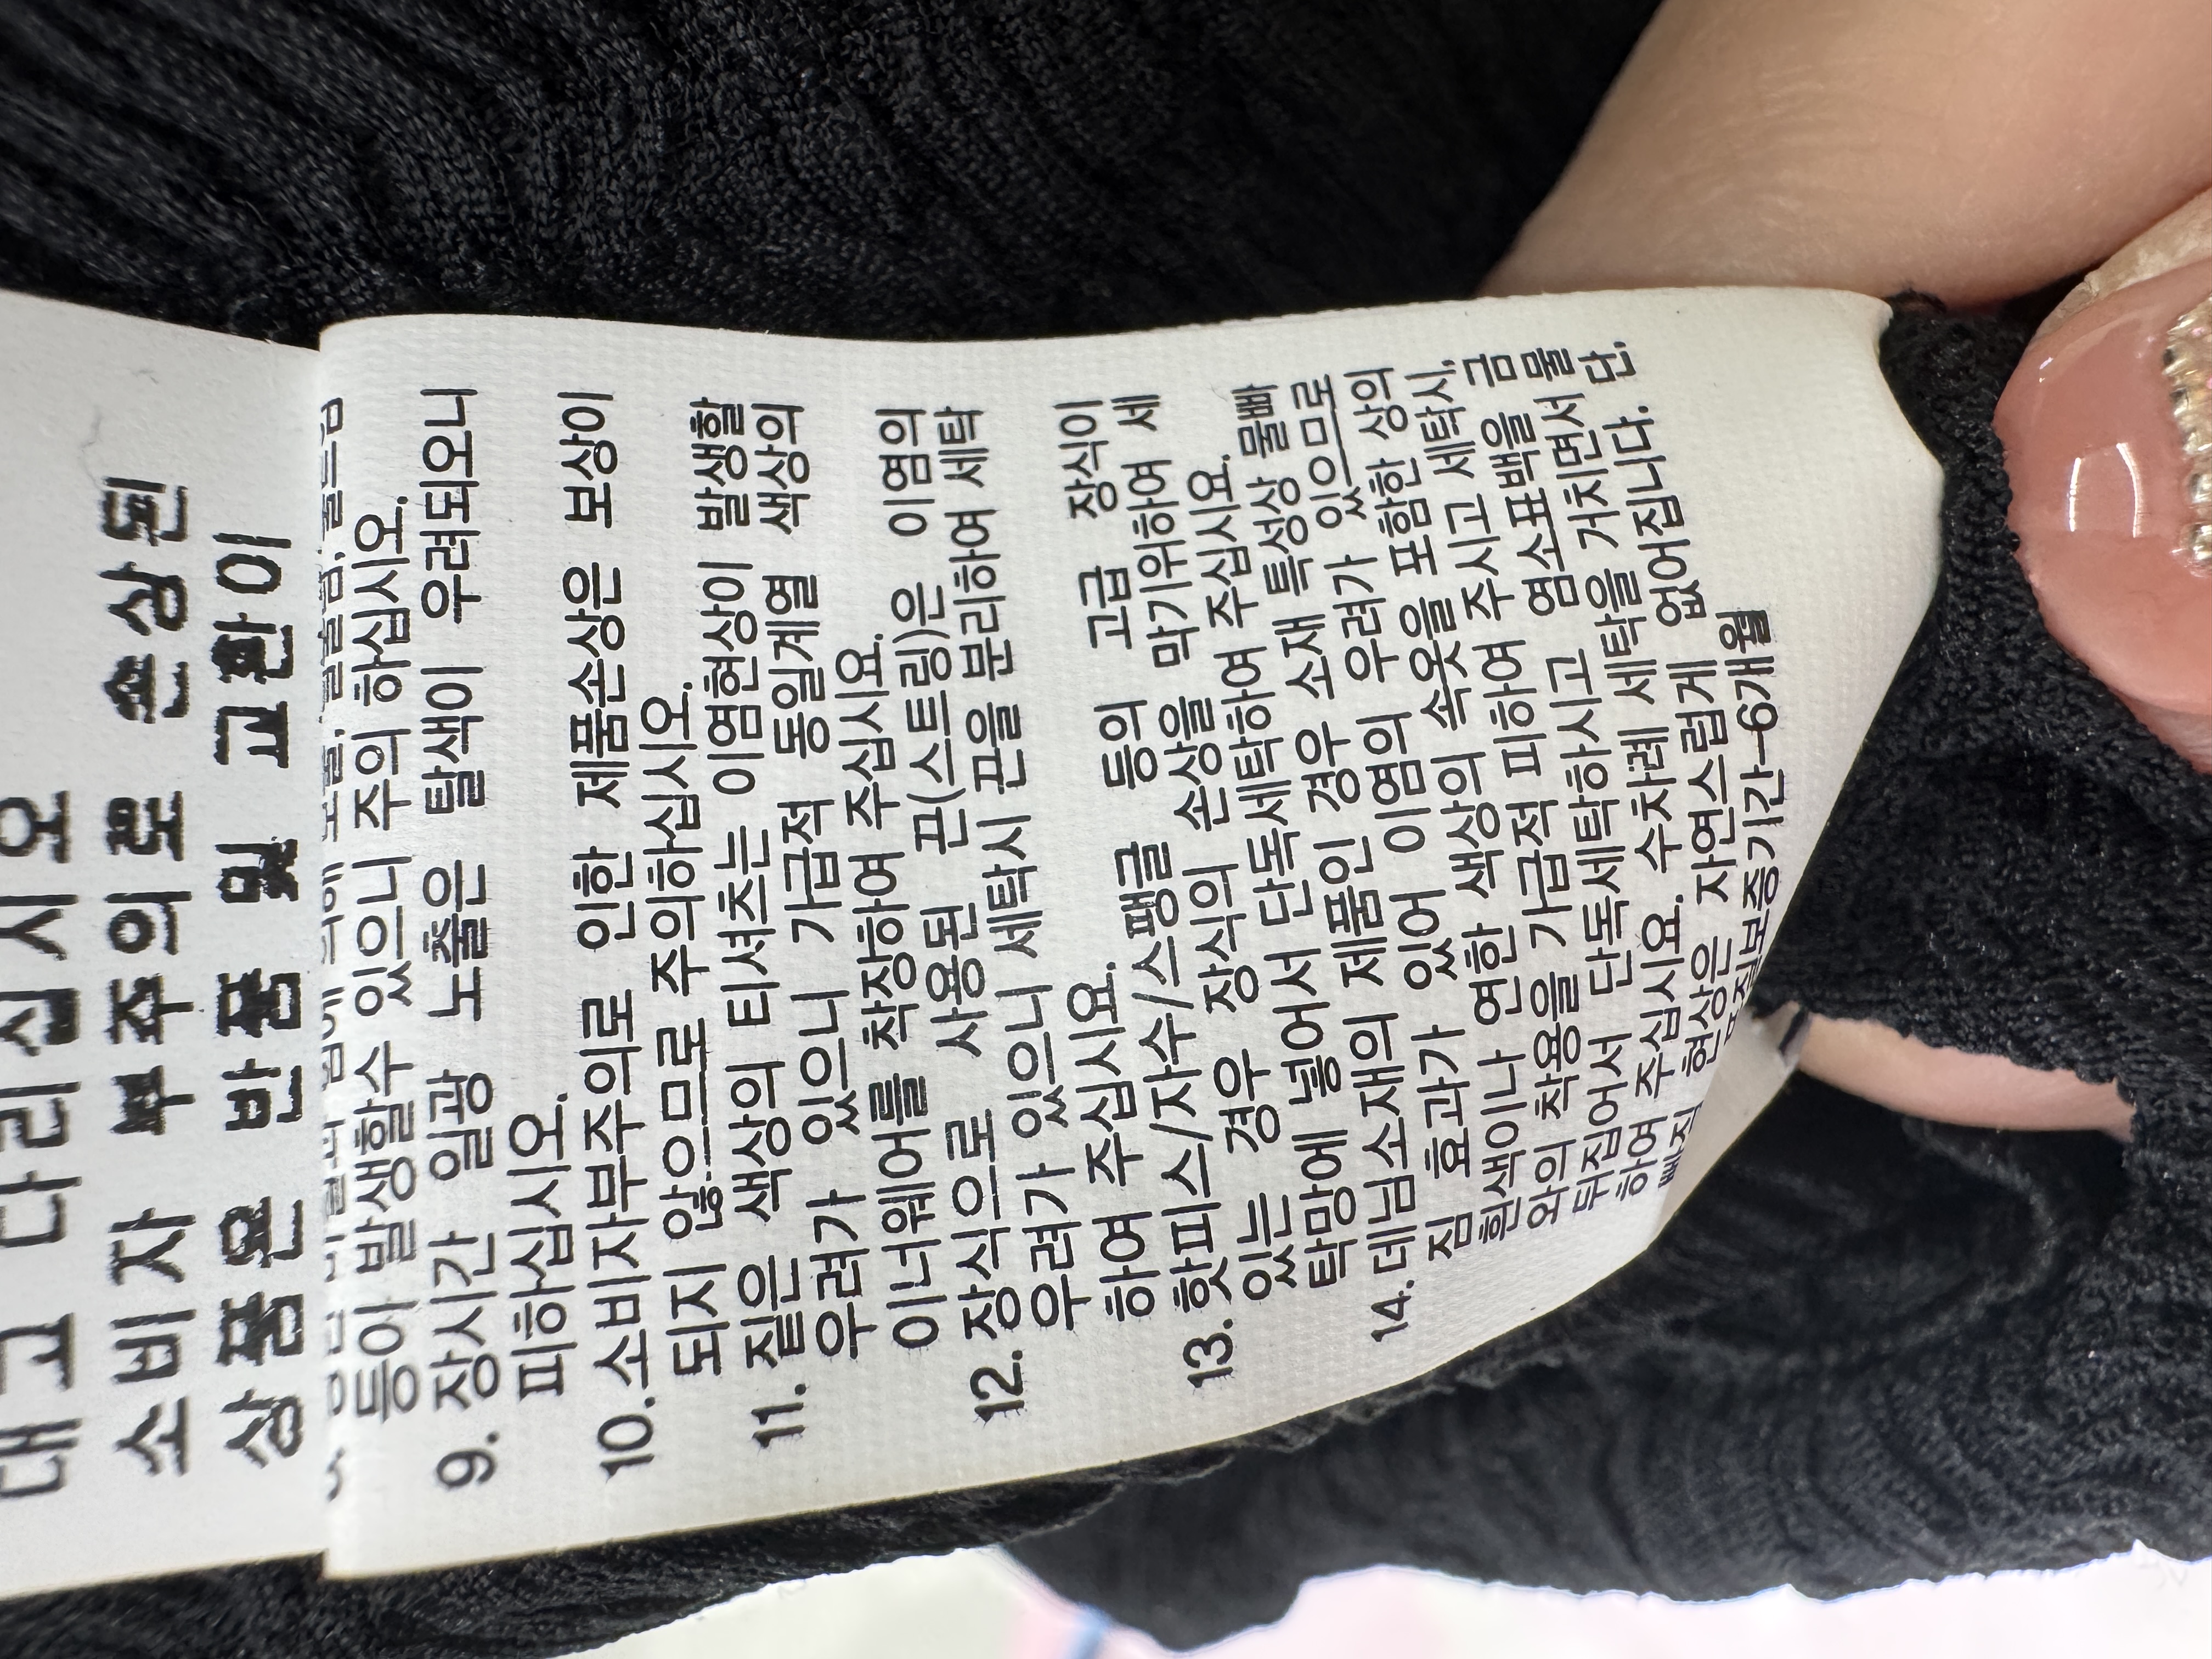 대고 다리십시오
소비자 부주의로 손상된
상품은 반품 및 교환이
등이 발생할수 있으니 주의 하십시오.
9. 장시간 일광 노출은 탈색이 우려되오니
피하십시오.
10. 소비자부주의로 인한 제품손상은 보상이
되지 않으므로 주의하십시오.
11. 짙은 색상의 티셔츠는 이염현상이 발생할
우려가 있으니 가급적 동일계열 색상의
이너웨어를 착장하여 주십시요.
12. 장식으로 사용된 끈(스트링)은 이염의
우려가 있으니 세탁시 끈을 분리하여 세탁
하여 주십시요.
13. 핫피스/자수/스팽글 등의 고급 장식이
있는 경우 장식의 손상을 막기위하여 세
탁망에 넣어서 단독세탁하여 주십시요.
14. 데님소재의 제품인 경우 소재 특성상 물빠
짐 효과가 있어 이염의 우려가 있으므로
흰색이나 연한 색상의 속옷을 포함한 상의
와의 착용을 가급적 피하여 주시고 세탁시,
뒤집어서 단독세탁하시고 염소표백을 금
하여 주십시요. 수차례 세탁을 거치면서 물
빠짐 현상은 자연스럽게 없어집니다. 단.
품질보증기간-6개월